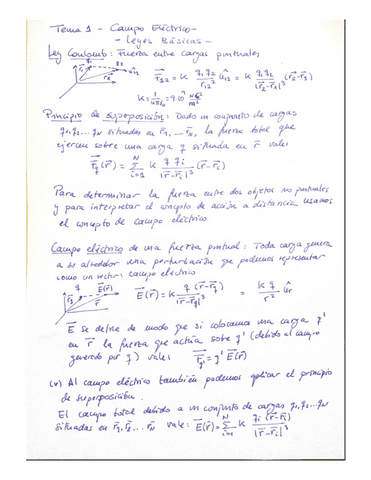 Tema 1 - Campo Eléctrico -
- Leyes Básicas -
Ley Coulomb: Fuerza entre cargas puntuales
q₁ q₂
K = 1/4πε₀ = 9·10⁹ Nm²/C²
Principio de superposición: Dado un conjunto de cargas
q₁, q₂ ... q_N situadas en r⃗₁, ... r⃗_N, la fuerza total que
ejercen sobre una carga q situada en r⃗ vale:
F⃗_q(r⃗) = Σ_{i=1}^{N} K q q_i / |r⃗ - r⃗_i|³ (r⃗ - r⃗_i)
Para determinar la fuerza entre dos objetos no puntuales
y para interpretar el concepto de acción a distancia usamos
el concepto de campo eléctrico
Campo eléctrico de una fuerza puntual: Toda carga genera
a su alrededor una perturbación que podemos representar
como un vector: campo electrico
q E⃗(r⃗)
E⃗(r⃗) = K q (r⃗ - r⃗_q) / |r⃗ - r⃗_q|³ = K q / r² û_r
E⃗ se define de modo que si colocamos una carga q'
en r⃗ la fuerza que actúa sobre q' (debido al campo
generado por q) vale: F⃗_q' = q' E⃗(r⃗)
(v) Al campo eléctrico también podemos aplicar el principio
de superposición.
El campo total debido a un conjunto de cargas q₁, q₂ ... q_N
situadas en r⃗₁, r⃗₂ ... r⃗_N vale: E⃗(r⃗) = Σ_{i=1}^{N} K q_i (r⃗ - r⃗_i) / |r⃗ - r⃗_i|³